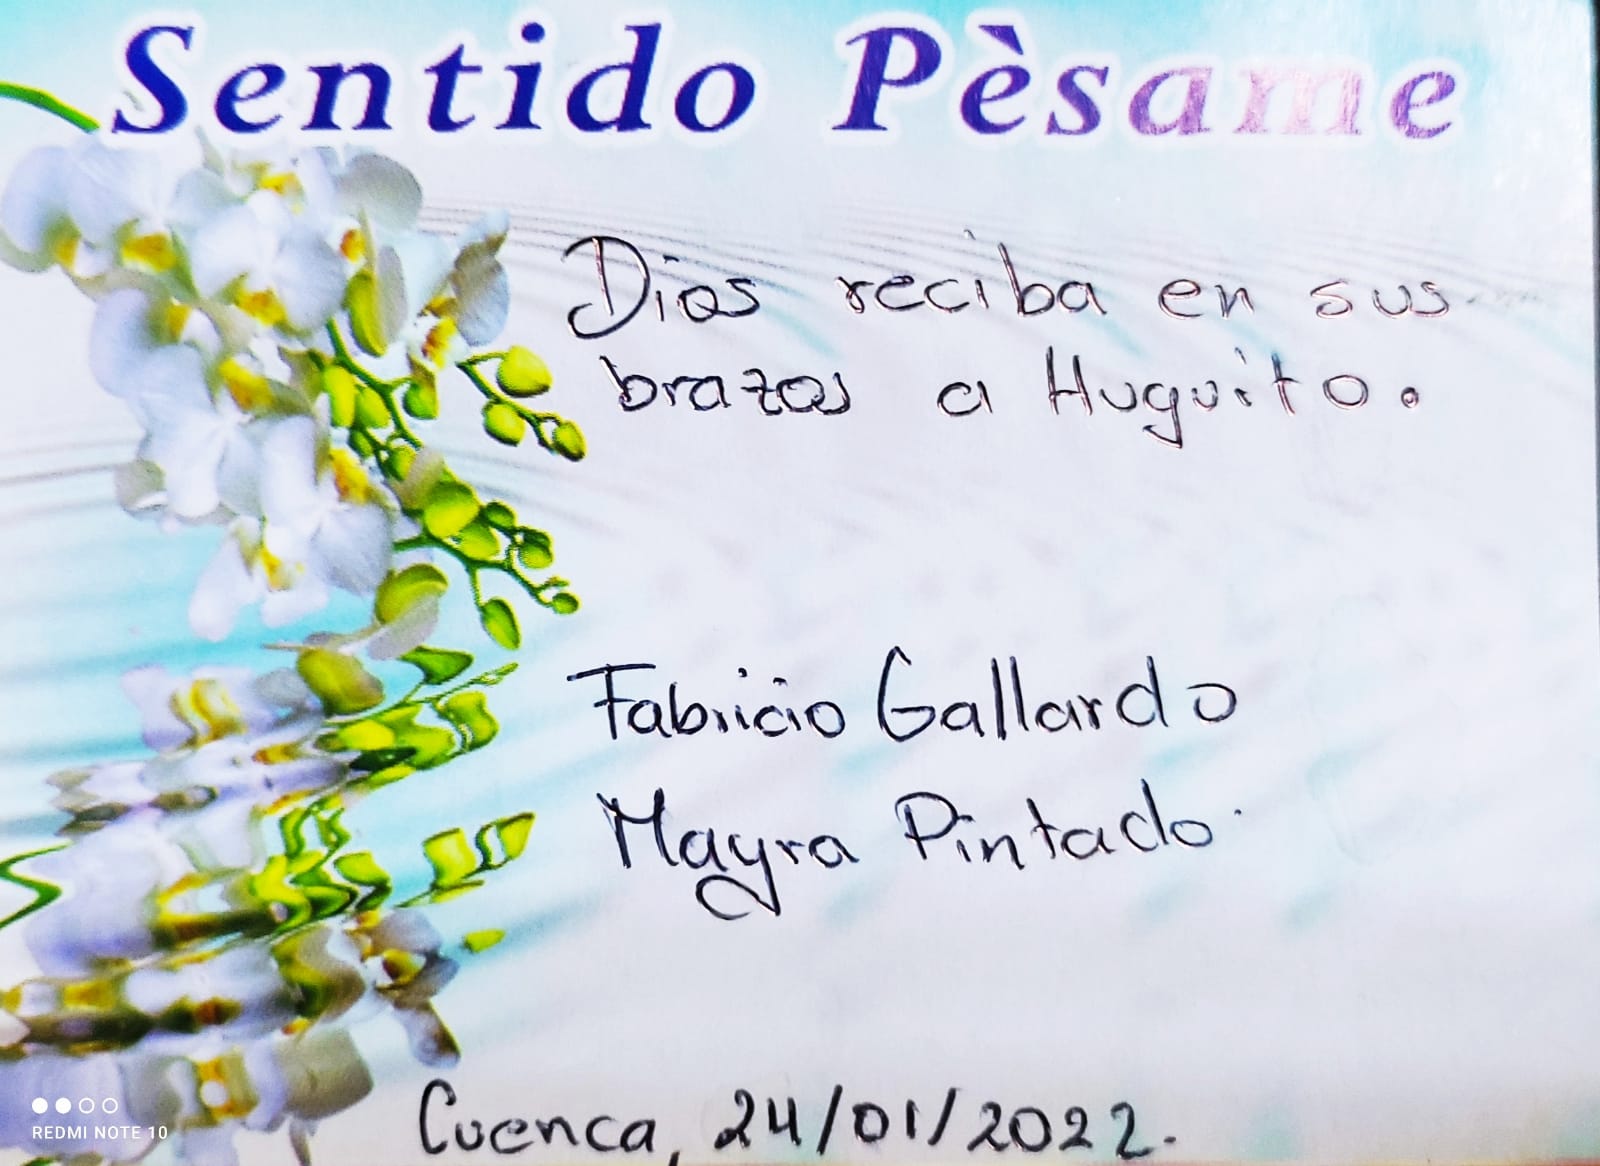 Sentido Pèsame
Dios reciba en sus
brazos a Huguito.
Fabricio Gallardo
Mayra Pintado.
Cuenca, 24/01/2022.
REDMI NOTE 10